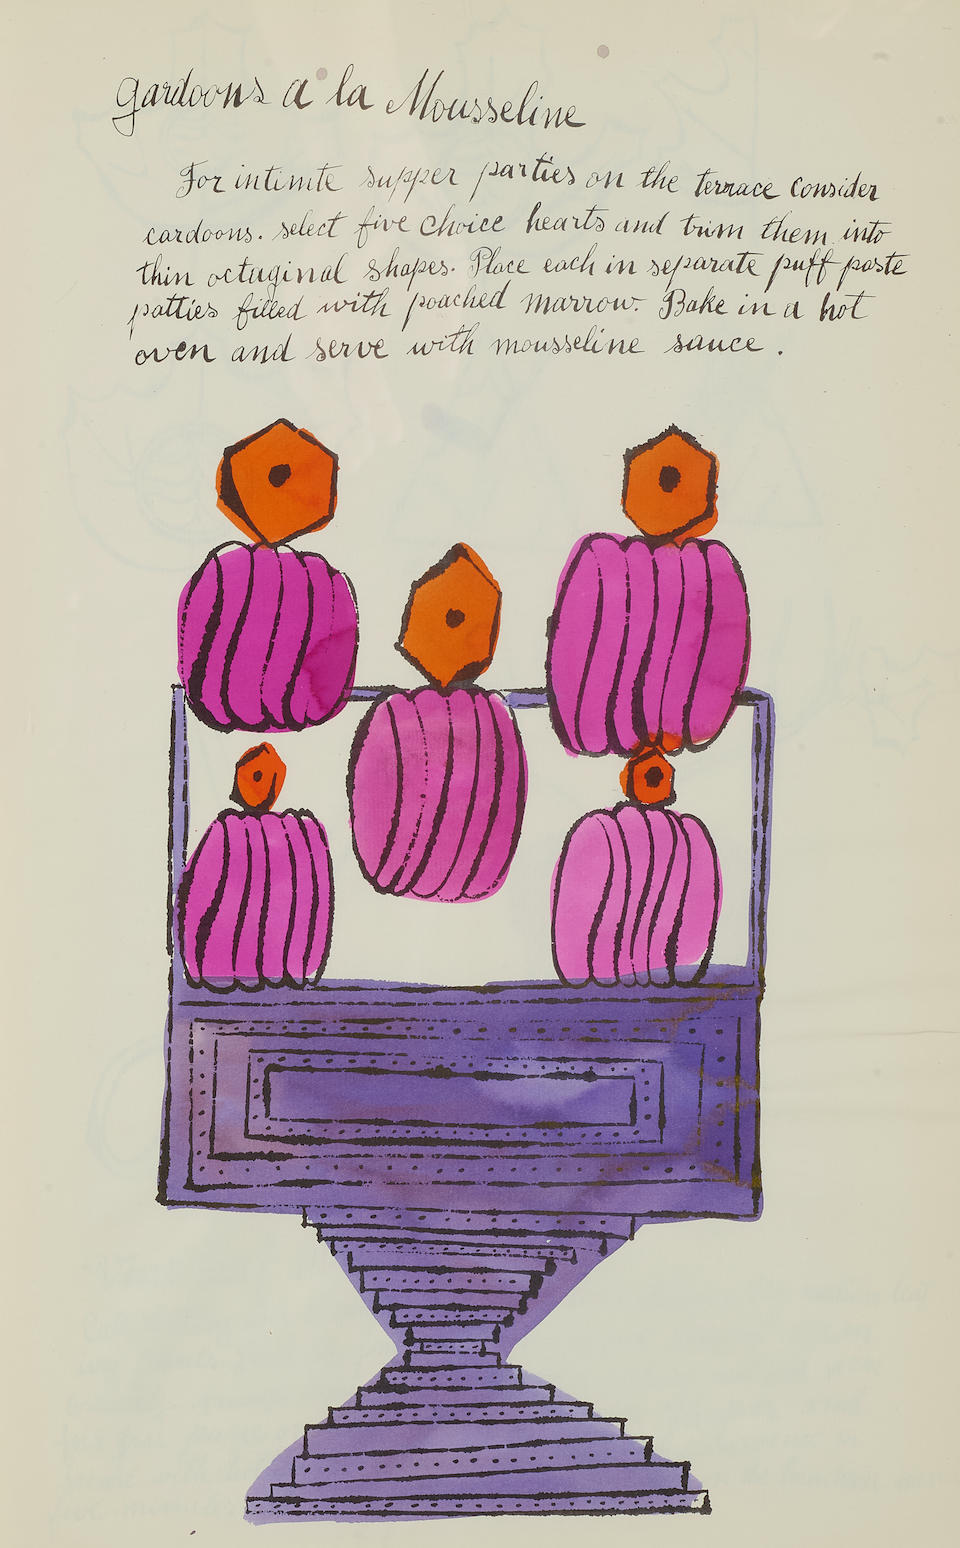 Gardoons a la Mousseline
For intimte supper parties on the terrace consider
cardoons. select five choice hearts and trim them into
thin octuginal shapes. Place each in separate puff paste
patties filled with poached marrow. Bake in a hot
oven and serve with mousseline sauce.